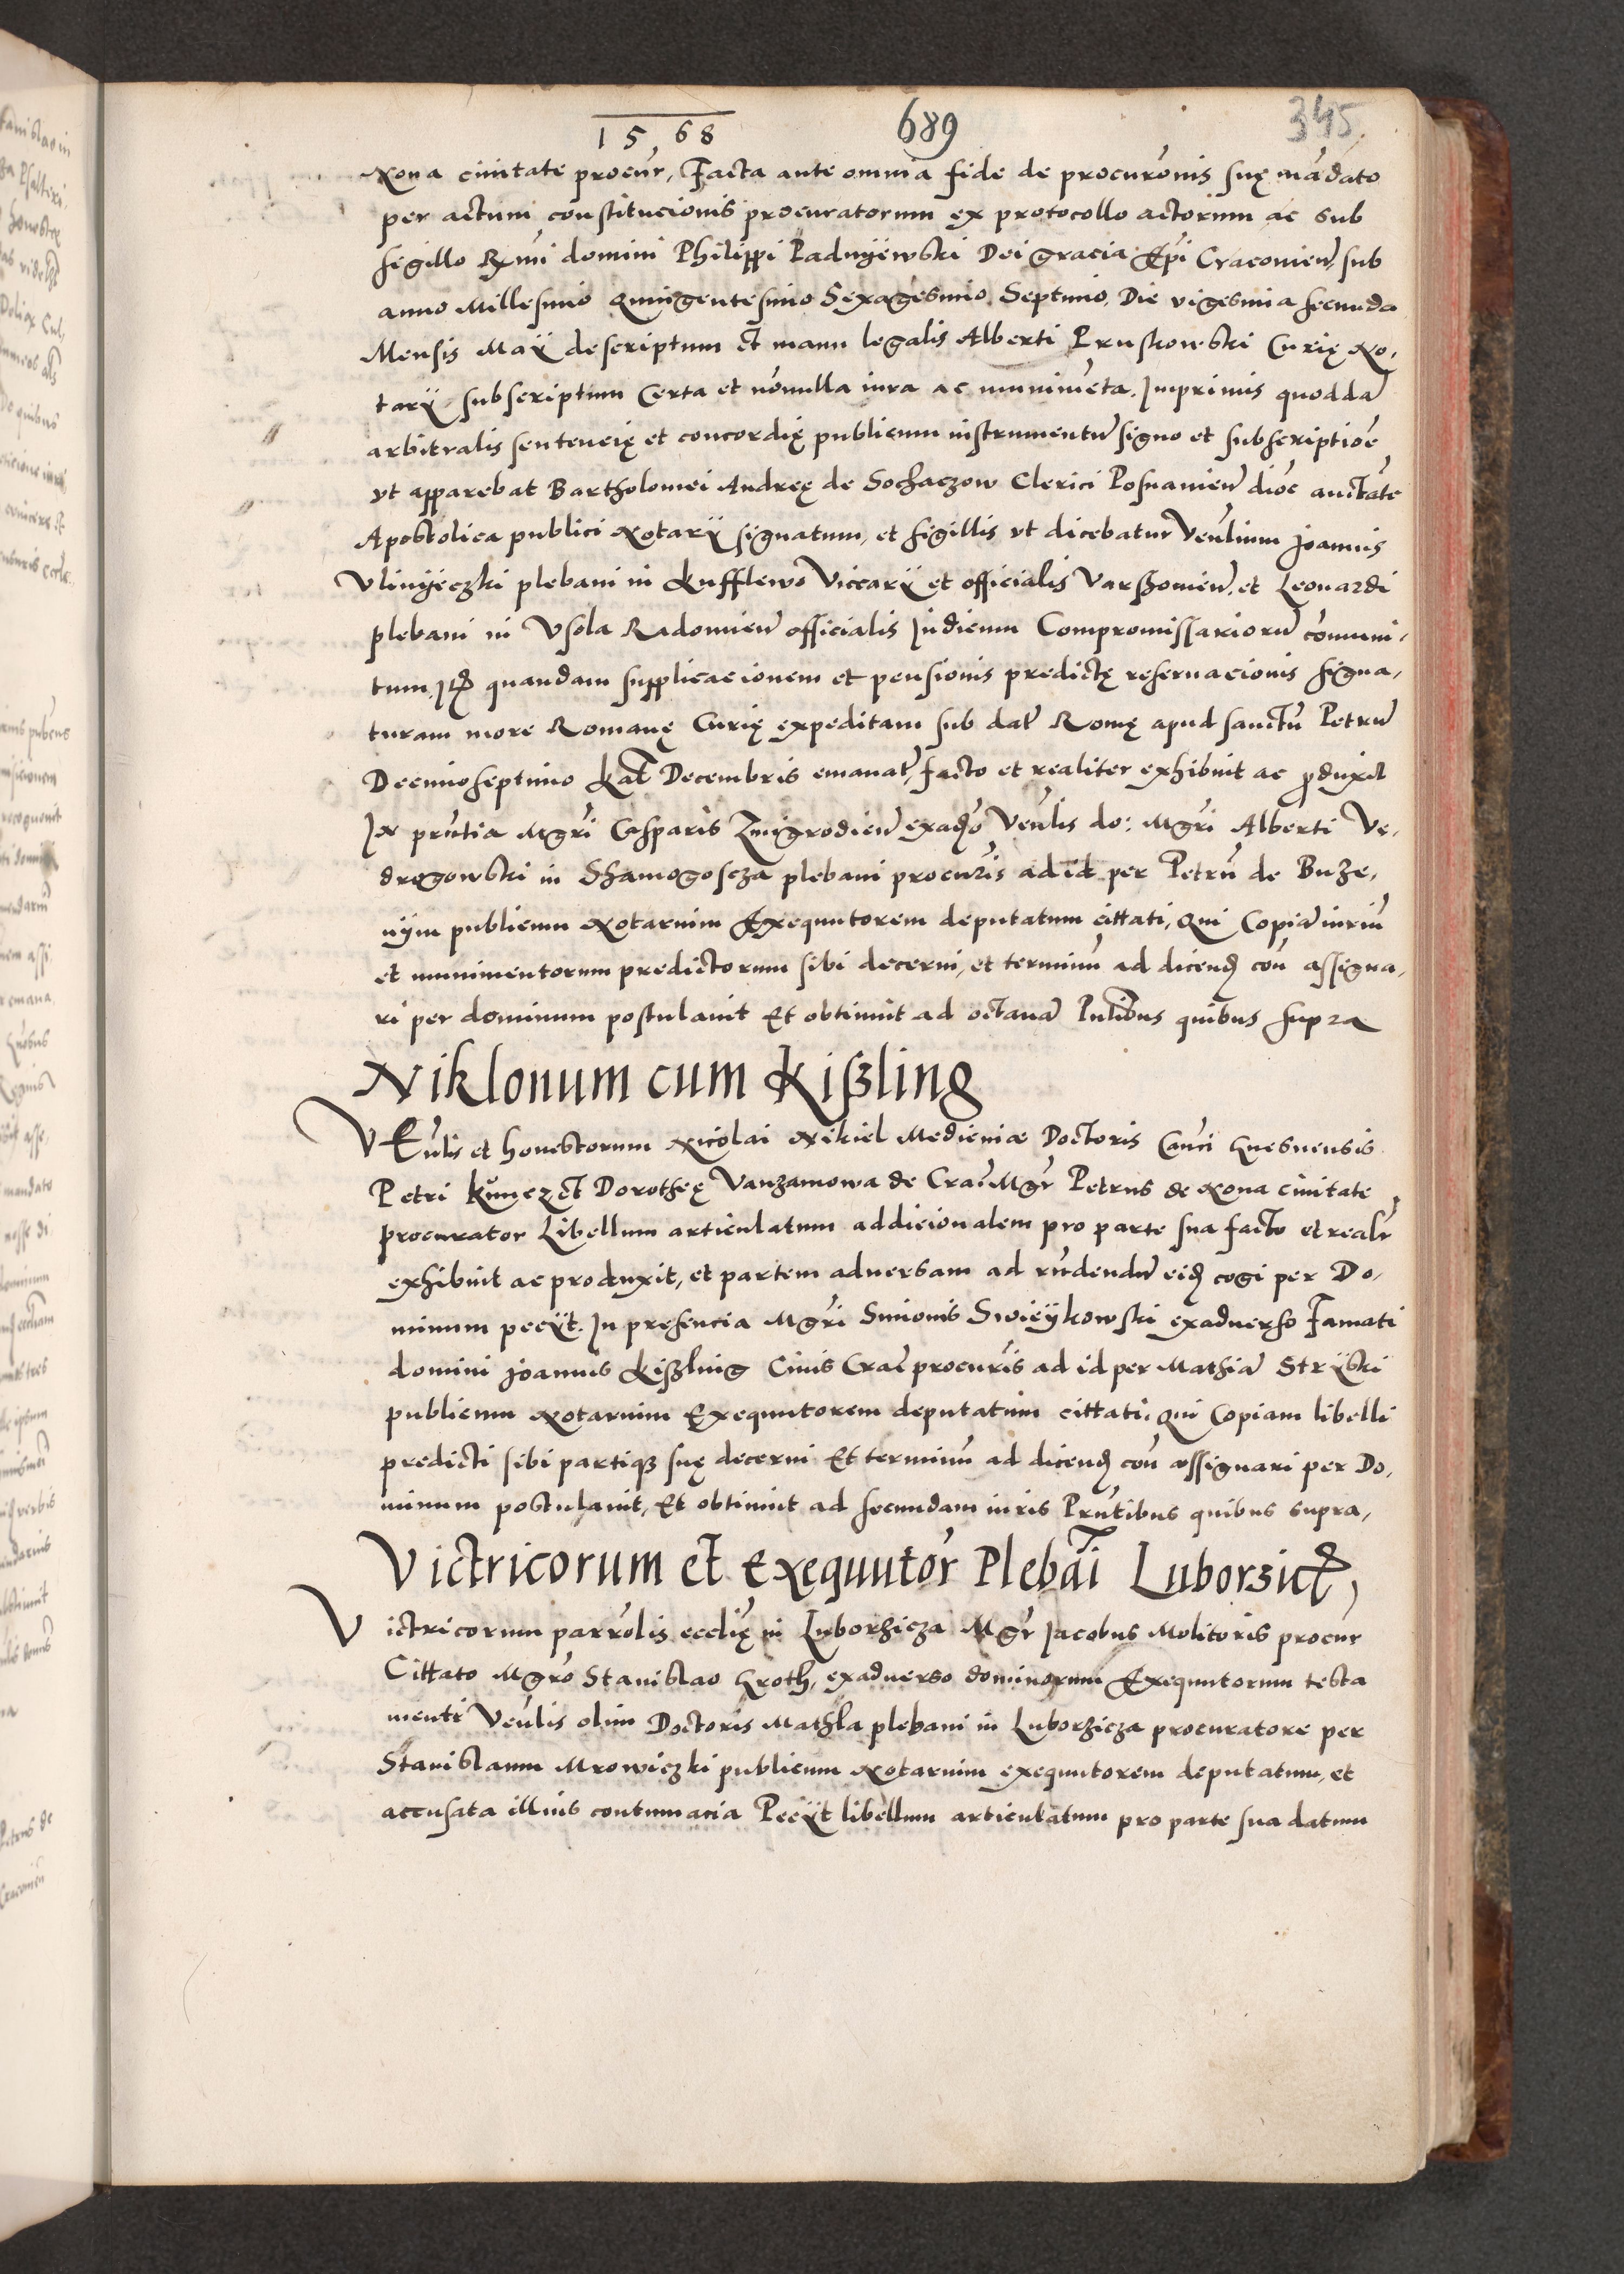 1568 689 345
Nona civitate procur, Facta ante omnia fide de procuronis suę mādato
per actum constitucionis procuratorum ex protocollo actorum ac sub
sigillo Rmi domini Philippi Padnyewski Dei gracia Epi Cracovien, sub
anno Millesimo Quingentesimo Sexagesimo Septimo, Die vigesima secunda
Mensis Maÿ descriptum et manu legalis Alberti Pruskowski Curię No,
tarÿ subscriptum Certa et nōnulla iura ac munimēta. Imprimis quoddā
arbitralis sentencię et concordię publicum instrumentū signo et subscriptiōe
vt apparebat Bartholomei Andreę de Sochaczow Clerici Posnanien dioc auctate
Apostolica publici Notarÿ signatum, et sigillis vt dicebatur Venlium Joannis
Vlinyeczki plebani in Kufflewo Viccarÿ et officialis Varschowien, et Leonardi
plebani in Vsola Radomien officialis Judicum Compromissariorū cōmuni,
tum, Itē quandam supplicacionem et pensionis predictę reservacionis signa,
turam more Romanę Curię expeditam sub dat Romę apud sanctū Petrū
Decimoseptimo Kal Decembris emanat, facto et realiter exhibuit ac produxit
In prntia Mgri Casparis Zmigrodien exadło Venlis do: Mgri Alberti Ve,
drogowski in Shamogoscza plebani procuris ad id per Petrū de Buze,
nym publicum Notarium Exequutorem deputatum cittati, Qui Copiā iuriū
et munimentorum predictorum sibi decerni, et terminū ad dicend con assigna,
ri per dominum postulavit Et obtinuit ad octavā Pntibus quibus supra
Niklonum cum Kisling
VEnlis et honestorum Nicolai Nikiel Medicinæ Doctoris Canci Gnesnensis
Petri Kuncz et Dorotheę Vanzamowa de Crac Mgr Petrus de Nona civitate
procurator Libellum articulatum addicionalem pro parte sua facto et realr
exhibuit ac produxit, et partem adversam ad rndendū eid cogi per Do,
minum pecÿt. In presencia Mgri Simonis Swieÿkowski exadverso Famati
domini Joannis Kiszling Civis Crac procuris ad id per Mathiā Strÿski
publicum Notarium Exequutorem deputatum cittati, Qui Copiam libelli
predicti sibi partiq suę decerni Et terminū ad dicend con assignari per Do,
minum postulavit, Et obtinuit ad secundam iuris Prntibus quibus supra,
Victricorum et Exequutor Plebāi Luborzicz,
Victricorum parrolis ecclię in Luborzicza Mgr Jacobus Molitoris procur
Cittato Mgro Stanislao Groth, exadverso dominorum Exequutorum testa
menti Venlis olim Doctoris Mathia plebani in Luborzicza procuratore per
Stanislaum Mrowiczki publicum Notarium exequutorem deputatum, et
accusata illius contumacia Pecÿt libellum articulatum pro parte sua datum